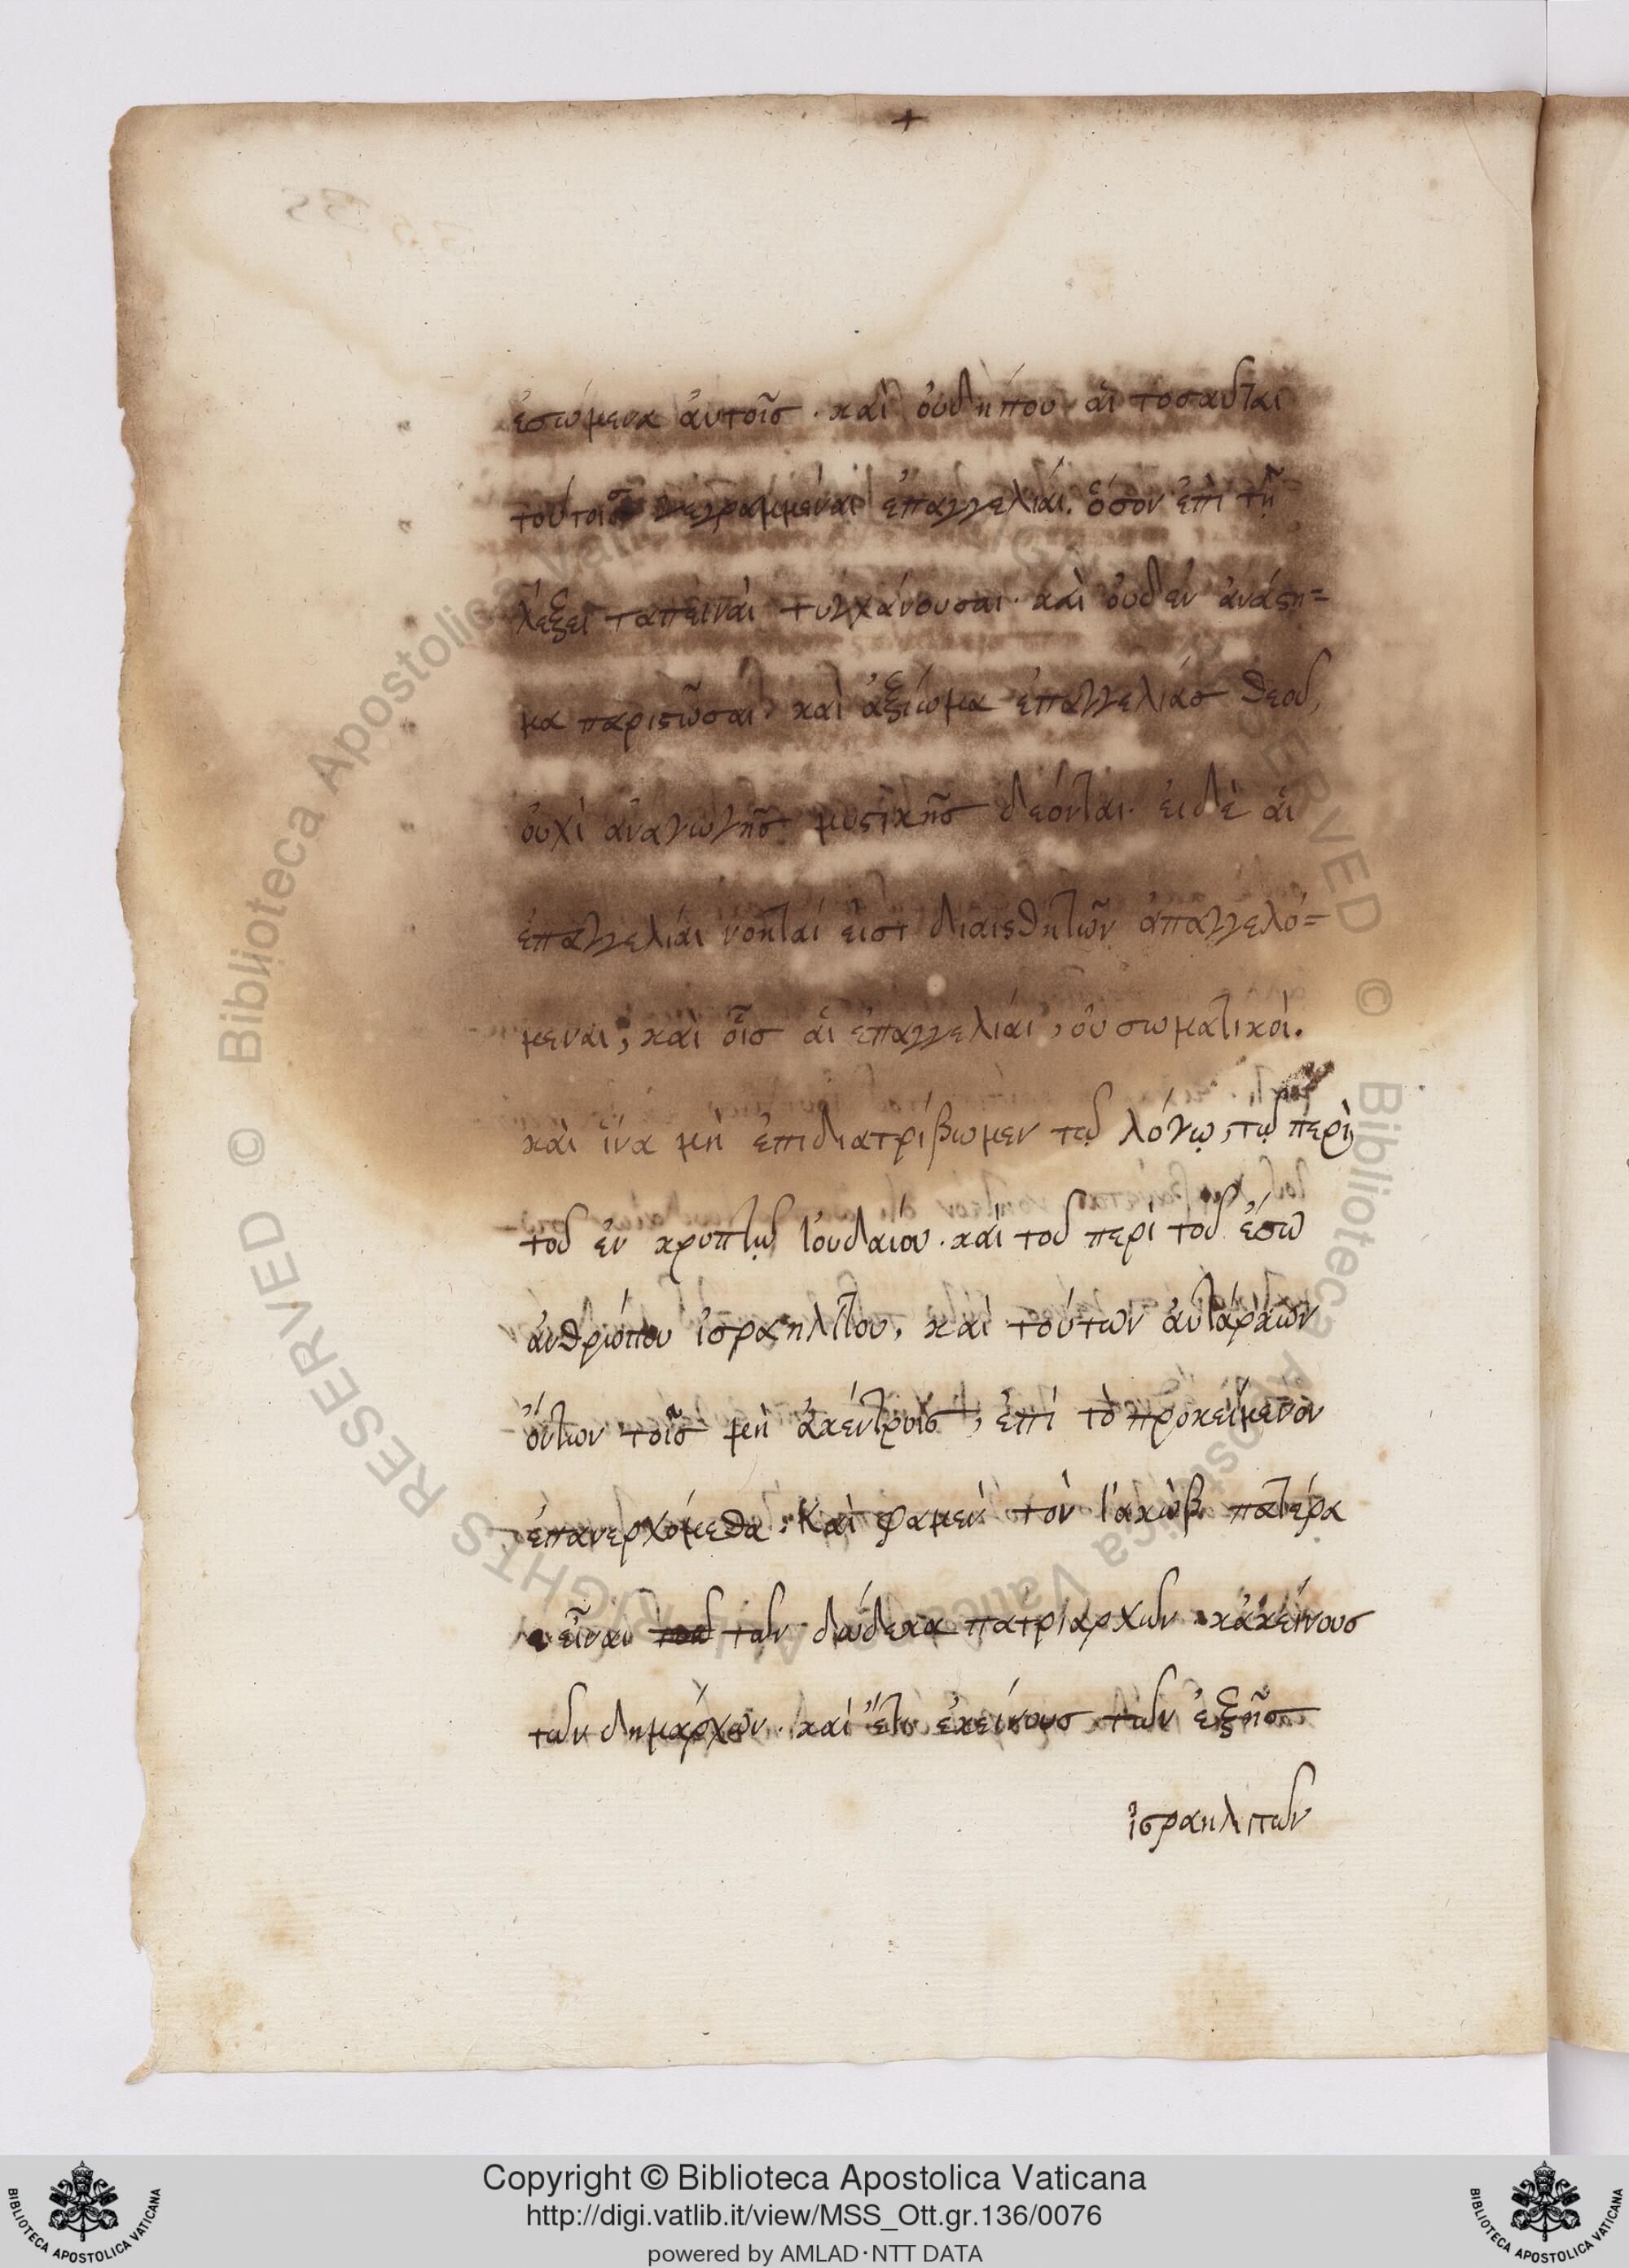 +
ἐσόμενα ἀυτοῖσ · καὶ ὀυδήπου ἁι τοσαῦται
τούτοισ γεγραμμέναι ἐπαγγελίαι. ὅσον ἐπὶ τῇ
λέξει ταπειναὶ τυγχάνουσαι · καὶ ὀυδὲν ἀνάςη=
μα παριςῶσαι καὶ ἀξίωμα ἐπαγγελίασ θεοῦ,
ὀυχὶ ἀναγωγῆσ μυςικῆσ δεόνται · ἐιδὲ ἁι
ἐπαγγελίαι νοηταί εἰσι διαισθητῶν ἀπαγγελό=
μεναι, καὶ οἷσ ἁι ἐπαγγελίαι, ὀυ σωματικοί.
καὶ ἵνα μὴ ἐπιδιατρίβωμεν τῷ λόγῳ, τῷ περὶ
τοῦ ἐν κρυπτῷ Ἰουδαίου · καὶ τοῦ περὶ τοῦ ἔσω
ἀνθρώπου ἰσραηλίτου, καὶ τούτων ἀυτάρκων
ὄντων τοῖσ μὴ ἀκέντροισ, ἐπὶ τὸ προκείμενον
ἐπανερχόμεθα · Καὶ φαμὲν τὸν Ἰακὼβ πατέρα
εἶναι τῶν δώδεκα πατριαρχῶν · κἀκείνουσ
τῶν δημάρχων · καὶ ἔτι ἐκείνουσ τῶν ἑξῆσ
ἰσραηλιτῶν
© Biblioteca Apostolica Vaticana
ALL RIGHTS RESERVED
Copyright © Biblioteca Apostolica Vaticana
http://digi.vatlib.it/view/MSS_Ott.gr.136/0076
powered by AMLAD·NTT DATA
BIBLIOTECA APOSTOLICA VATICANA
BIBLIOTECA APOSTOLICA VATICANA